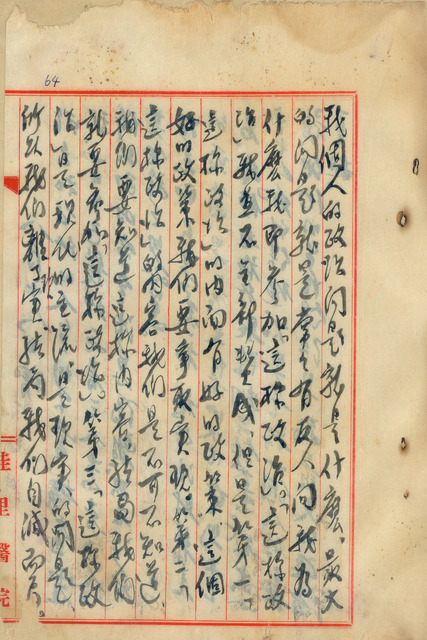 64
我個人的政治問題就是什麼、最大
的問題就是常々有友人問我為
什麼我即參加「這樣政治」。「這樣政
治」我並不全部贊成 但是第一、「
這樣政治」的内面有好的政策 這個
好的政策我們要爭取實現。第二、「
這樣政治」的内容我們是不可不知道
我們要知道這樣内容 我們
就要參加「這樣政治」。第三、「這樣政
治」是現代的主流 是現實的問題
所以我們離了實 我們自滅而
佳里醫院